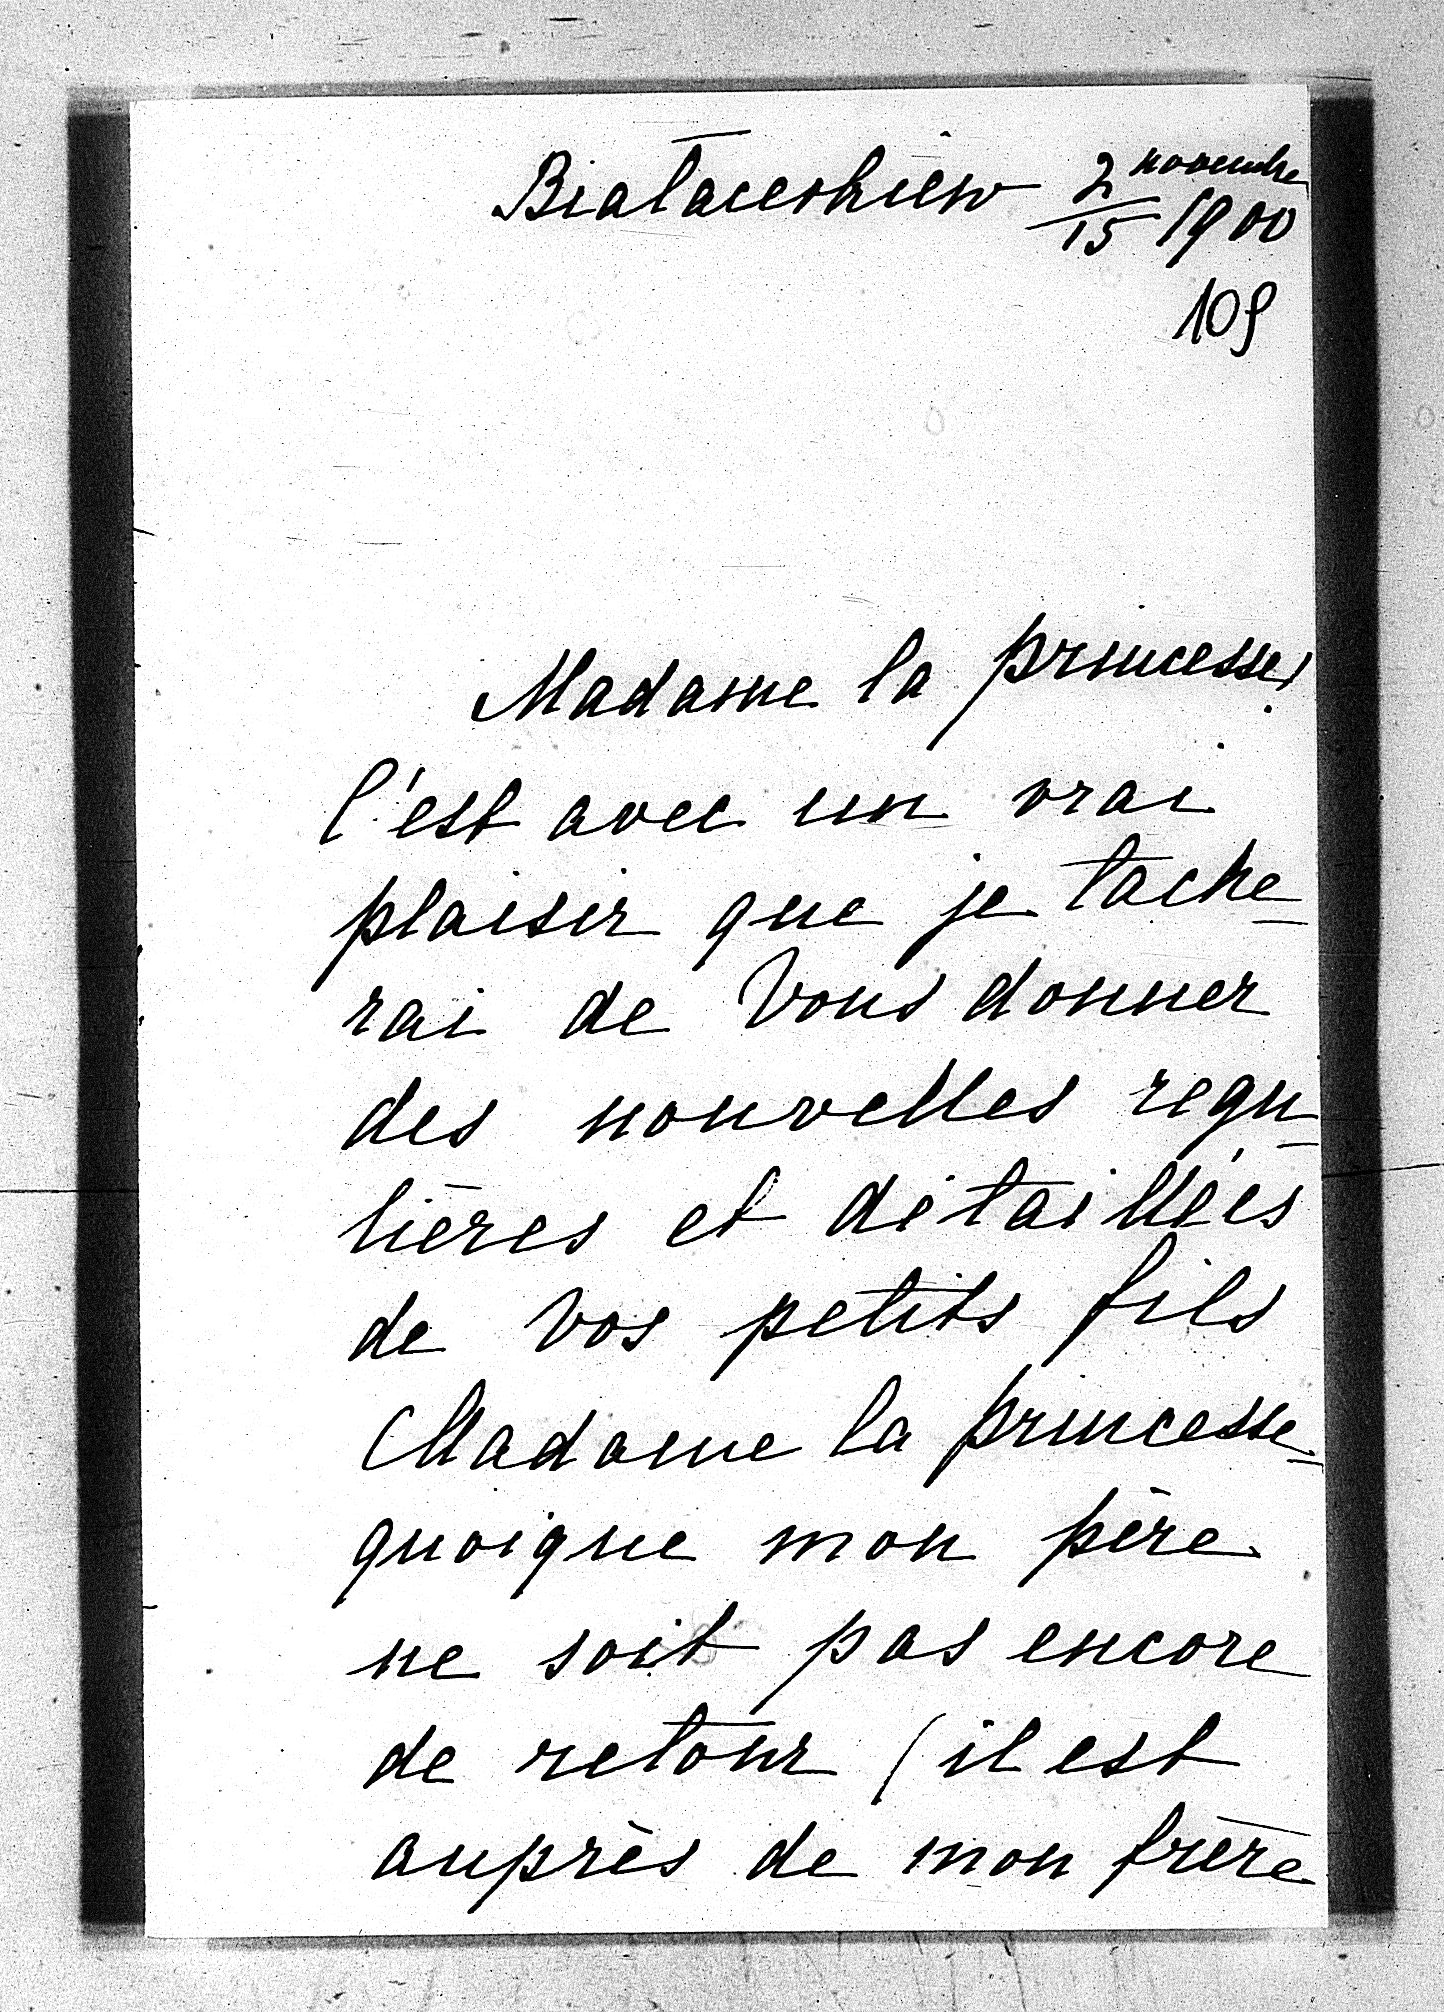 Białacerkiew 2/15 novembre 1900
109
Madame la princesse,
C'est avec un vrai
plaisir que je tache-
rai de Vous donner
des nouvelles regu-
lières et détaillées
de Vos petits fils
Madame la princesse-
quoique mon père
ne soit pas encore
de retour (il est
auprès de mon frère